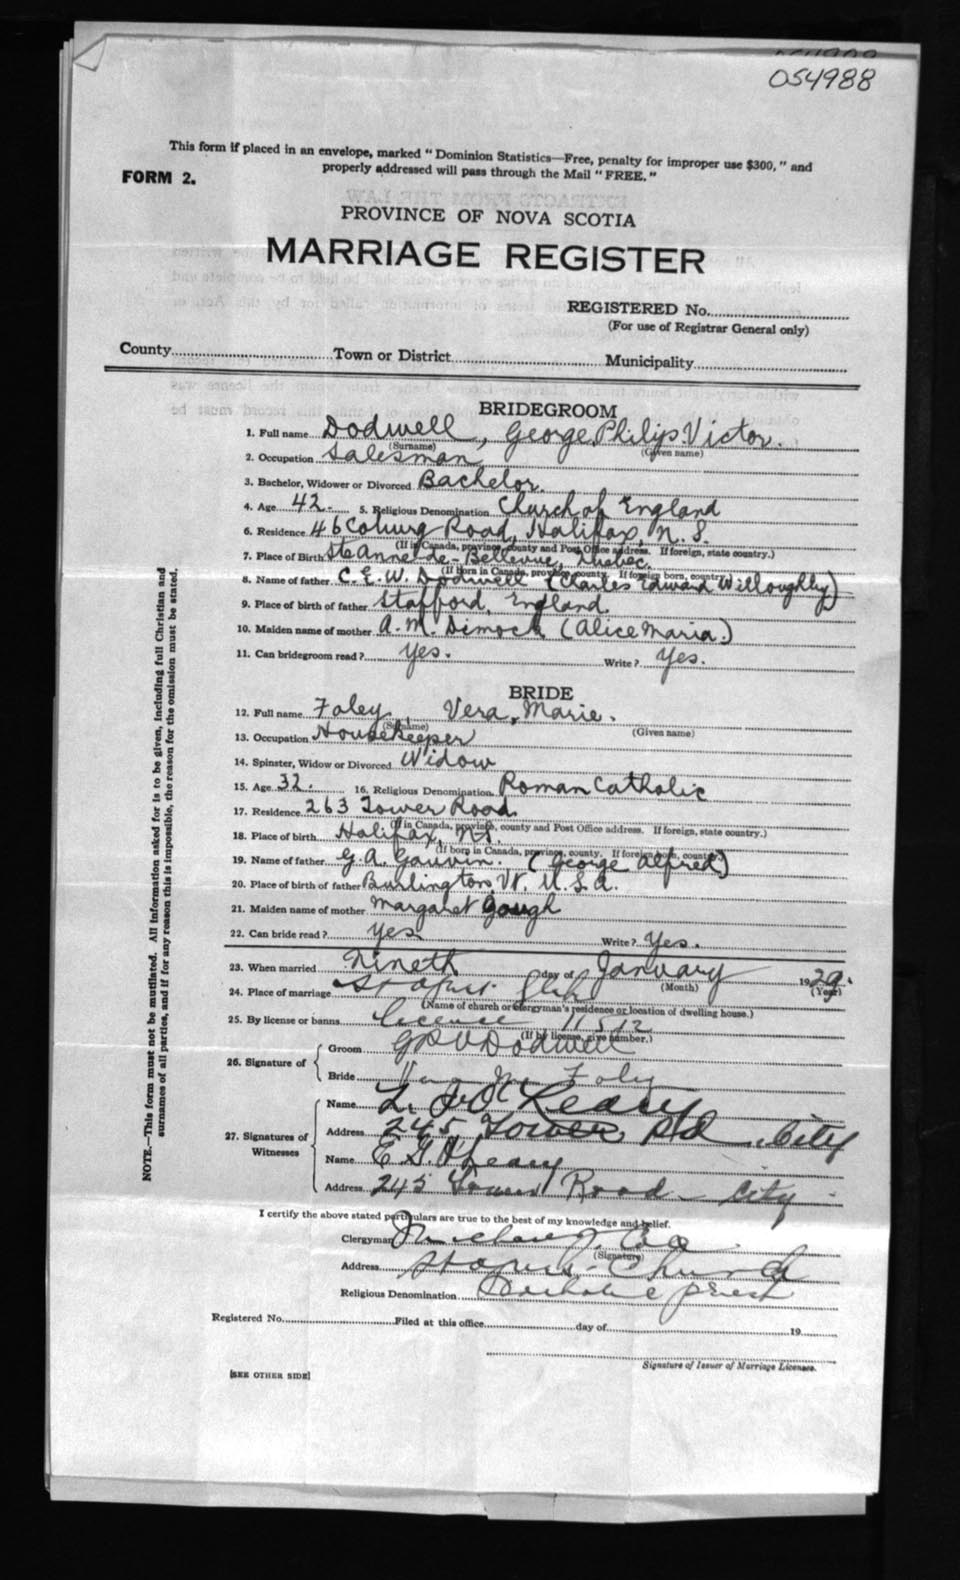 054988
This form if placed in an envelope, marked "Dominion Statistics—Free, penalty for improper use $300," and
properly addressed will pass through the Mail "FREE."
FORM 2.
PROVINCE OF NOVA SCOTIA
MARRIAGE REGISTER
REGISTERED No.
(For use of Registrar General only)
County Town or District Municipality
BRIDEGROOM
1. Full name Dodwell, George Philips Victor.
(Surname) (Given name)
2. Occupation Salesman
3. Bachelor, Widower or Divorced Bachelor.
4. Age 42. 5. Religious Denomination Church of England
6. Residence 46 Coburg Road, Halifax, N. S.
(If in Canada, province, county and Post Office address. If foreign, state country.)
7. Place of Birth Ste Anne-de-Bellevue, Quebec.
(If born in Canada, province, county. If foreign born, country.)
8. Name of father C. E. W. Dodwell (Charles Edward Willoughby)
9. Place of birth of father Stafford, England.
10. Maiden name of mother A. M. Dimock (Alice Maria.)
11. Can bridegroom read? Yes. Write? Yes.
BRIDE
12. Full name Foley, Vera, Marie.
(Surname) (Given name)
13. Occupation Housekeeper
14. Spinster, Widow or Divorced Widow
15. Age 32. 16. Religious Denomination Roman Catholic
17. Residence 263 Tower Road
(If in Canada, province, county and Post Office address. If foreign, state country.)
18. Place of birth Halifax, N.S.
(If born in Canada, province, county. If foreign born, country.)
19. Name of father G. A. Gauvin. (George Alfred)
20. Place of birth of father Burlington, Vt. U.S.A.
21. Maiden name of mother Margaret Gough
22. Can bride read? Yes Write? Yes.
23. When married Nineth day of January 1929.
(Month) (Year)
24. Place of marriage
(Name of church or clergyman's residence or location of dwelling house.)
25. By license or banns License 11512
(If by license, give number.)
26. Signature of
Groom GPV Dodwell
Bride Vera M. Foley
27. Signatures of Witnesses
Name L. J. O'Leary
Address 245 Tower Rd. City
Name E. G. O'Leary
Address 245 Tower Road - City
I certify the above stated particulars are true to the best of my knowledge and belief.
Clergyman
(Signature)
Address Church
Religious Denomination Catholic priest
Registered No. Filed at this office day of 19
Signature of Issuer of Marriage Licenses.
[SEE OTHER SIDE]
NOTE.—This form must not be mutilated. All information asked for is to be given, including full Christian and
surnames of all parties, and if for any reason this is impossible, the reason for the omission must be stated.